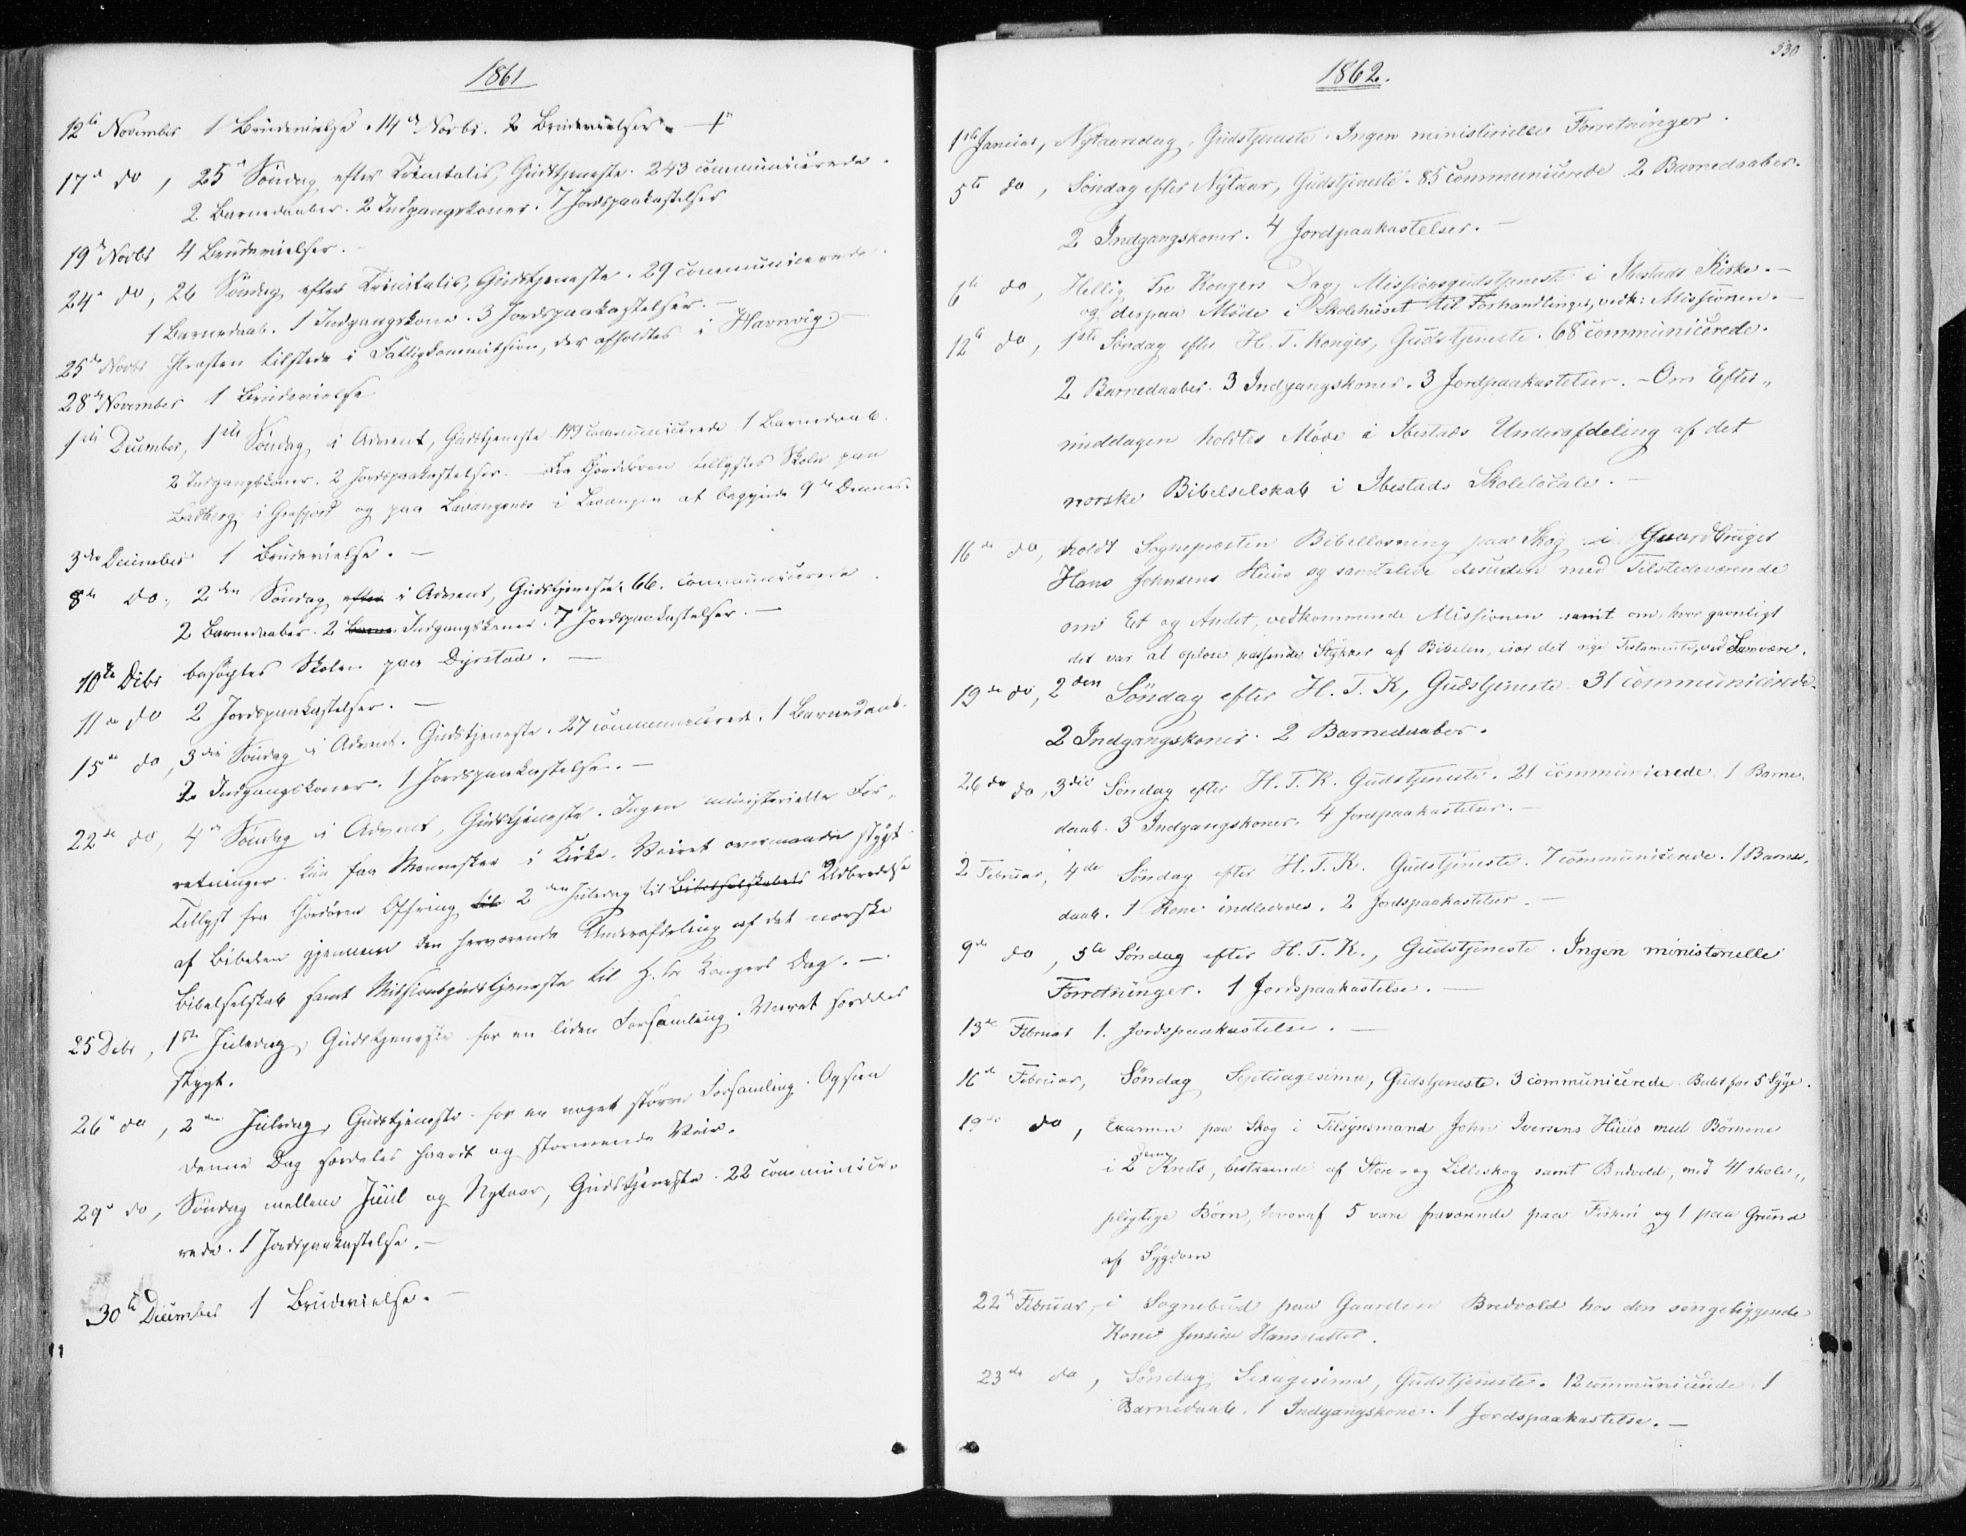 1861
12te November 1 Brudevielse. 14de Novbr. 2 Brudevielser. —
17de do, 25de Søndag efter Trinitatis, Gudstjeneste. 243 communicerede.
2 Barnedaaber. 2 Indgangskoner. 7 Jordspaakastelser
19de Novbr 4 Brudevielser. —
24de do, 26 Søndag efter Trinitatis, Gudstjeneste. 29 communicerede.
1 Barnedaab. 1 Indgangskone. 3 Jordspaakastelser. —
25de Novbr Præsten tilstede i Fattigkommission, der afholdtes i Havnvig. —
28de November 1 Brudevielse
1ste December, 1ste Søndag i Advent, Gudstjeneste. communicerede 1 Barnedaab.
2 Indgangskoner. 2 Jordspaakastelser. — Fra Chordøren tillystes Skoler paa
i Grafjord og paa Lavangsnes i Lavangen at begynde 9de Dennes.
3die December 1 Brudevielse. —
8de do, 2den Søndag efter i Advent, Gudstjeneste, 66. communicerede
2 Barnedaaber. 2 Barne Indgangskoner. 7 Jordspaakastelser. —
10de Dcbr besøgtes Skolen paa Dyrstad. —
11te do 2 Jordspaakastelser. —
15de do, 3die Søndag i Advent. Gudstjeneste. 27 communicerede. 1 Barnedaab.
2 Indgangskoner. 1 Jordspaakastelse. —
22de do, 4de Søndag i Advent, Gudstjeneste. Ingen ministerielle For-
retninger. Kun faa Mennesker i Kirke. Veiret overmaade stygt.
Tillyst fra Chordøren Offring til 2den Juledag til Bibelselskabets Udbredelse
af Bibelen gjennem den herværende Underafdeling af det norske
Bibelselskab samt Missionsgudstjeneste til H. tre Kongers Dag. —
25 Debr, 1ste Juledag, Gudstjeneste for en liden Forsamling. Veiret særdeles
stygt.
26de do, 2den Juledag, Gudstjeneste for en noget større Forsamling. Ogsaa
denne Dag særdeles haardt og stormende Veir.
29de do, Søndag mellem Juul og Nytaar, Gudstjeneste. 22 communice-
rede. 1 Jordspaakastelse. —
30te December 1 Brudevielse. —
330
1862.
1ste Januar, Nytaarsdag, Gudstjeneste. Ingen ministerielle Forretninger.
5te do, Søndag efter Nytaar, Gudstjeneste. 85 communicerede 2 Barnedaaber.
2 Indgangskoner. 4 Jordpaakastelser. —
6te do, Hellig Tre Kongers Dag, Missionsgudstjeneste i Ibestads Kirke. —
og derpaa Møde i Skolehuset til Forhandlinger, vedk: Missionen. —
12te do, 1ste Søndag efter H. T. Konger, Gudstjeneste. 68 communicerede.
2 Barnedaaber. 3 Indgangskoner. 3 Jordpaakastelser. — Om Efter-
middagen holdtes Møde i Ibestads Underafdeling af det
norske Bibelselskab i Ibestads Skolelocale. —
16de do, holdt Sognepræsten Bibellæsning paa Skog i Gaardbruger
Hans Johnsens Huus og samtalede desuden med Tilstedeværende
om Et og Andet, vedkommende Missionen samt om, hvor gavnligt
det var at oplæse passende Stykker af Bibelen, især det nye Testamente, ved Samvære.
19de do, 2den Søndag efter H. T. K, Gudstjeneste 31 communicerede.
2 Indgangskoner. 2 Barnedaaber.
26de do, 3die Søndag efter H. T. K. Gudstjeneste. 21 communicerede. 1 Barne-
daab. 3 Indgangskoner. 4 Jordspaakastelser. —
2 Februar, 4de Søndag efter H. T. K. Gudstjeneste. 7 communicerede. 1 Barne-
daab. 1 Kone indlededes. 2 Jordspaakastelser. —
9de do, 5te Søndag efter H. T. K., Gudstjeneste. Ingen ministerielle
Forretninger. 1 Jordspaakastelse. —
13de Februar 1. Jordspaakastelse. —
16de Februar, Søndag Septuagesima, Gudstjeneste. 3 communicerede. Bedet for 5 Syge.
19de do, Examen paa Skog i Tilsynsmand John Iversens Huus med Børnene
i 2den Kreds, bestaaende af Store- og Lilleskog samt Bredvold, med 41 skole-
pligtige Børn, hvoraf 5 vare fraværende paa Fiskeri og 1 paa Grund
af Sygdom
22de Februar, i Sognebud paa Gaarden Bredvold hos den sengeliggende
Kone Jensine Hansdatter.
23de do, Søndag Sexagesima, Gudstjeneste. 12 communicerede 1
Barnedaab. 1 Indgangskone. 1 Jordspaakastelse. —